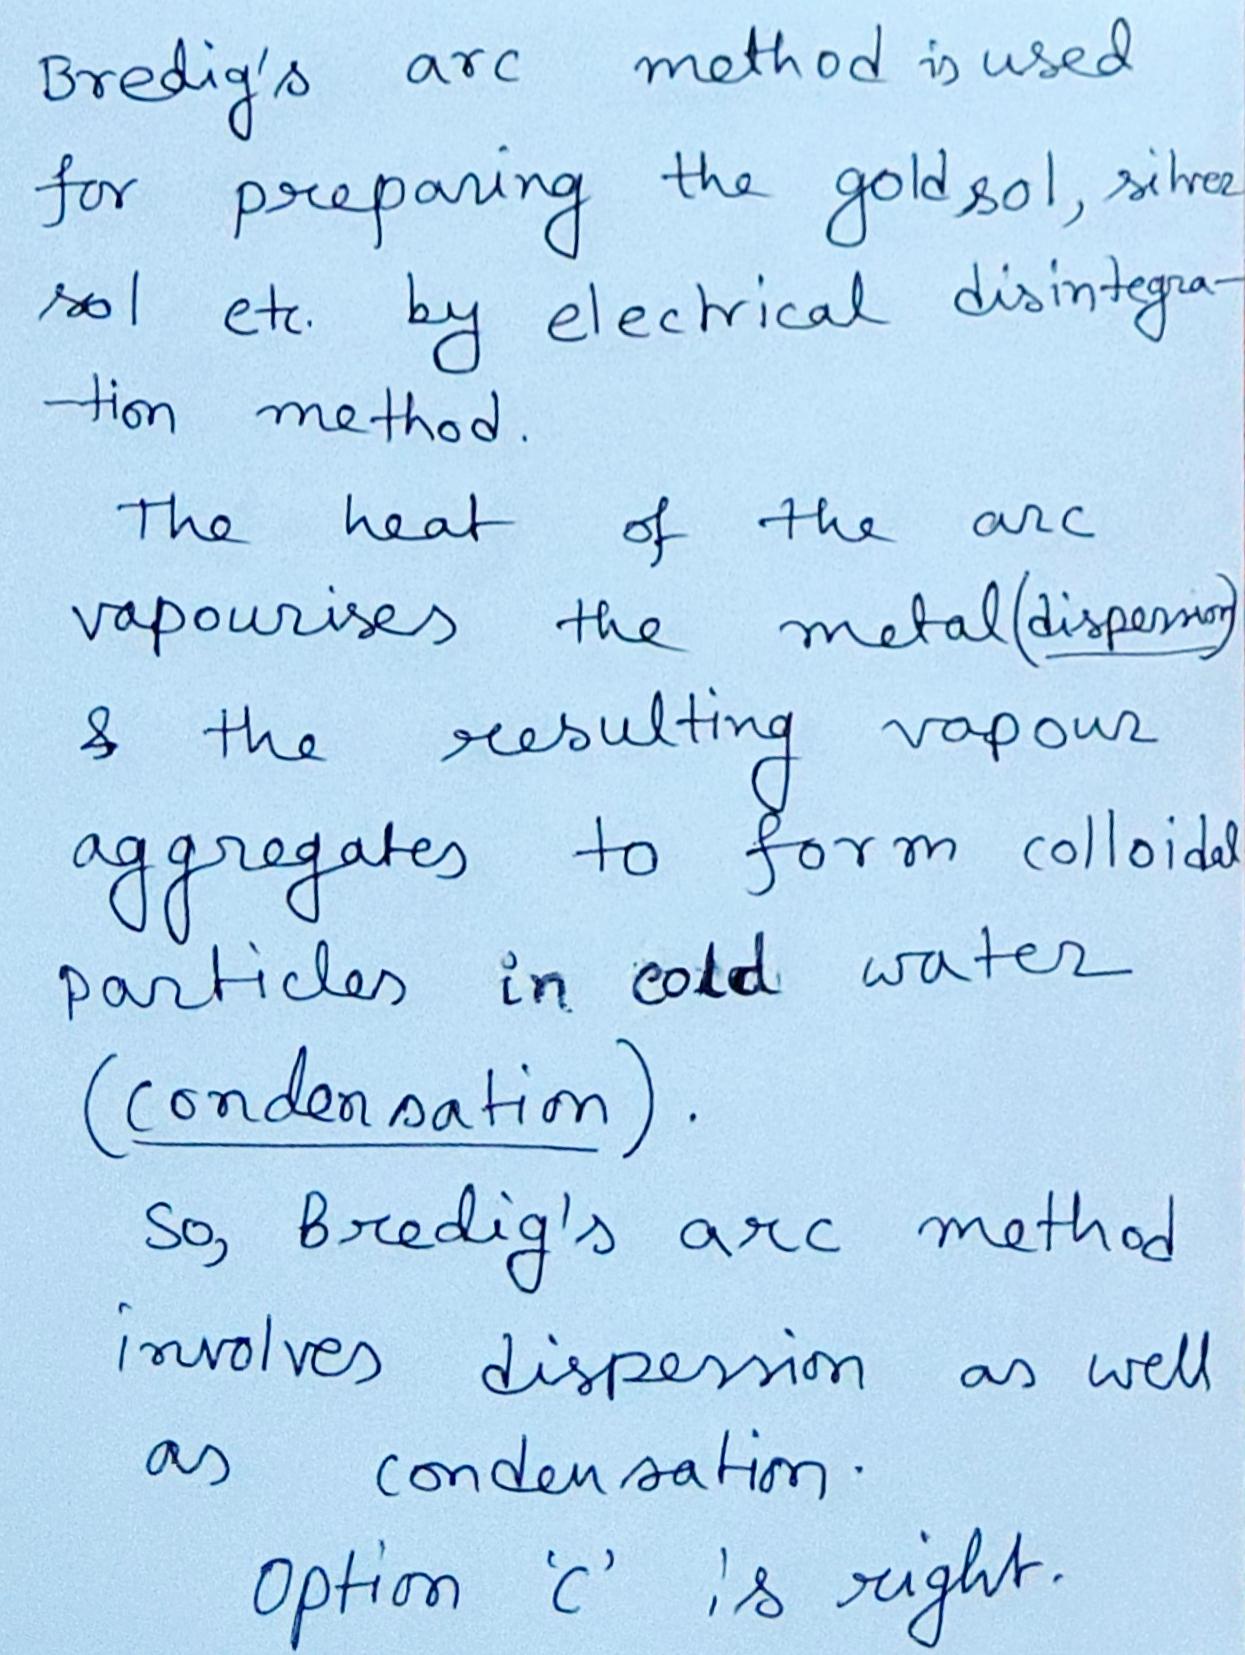 Bredig's arc method is used
for preparing the gold sol, silver
sol etc. by electrical disintegra-
-tion method.
The heat of the arc
vapourises the metal (dispersion)
& the resulting vapour
aggregates to form colloidal
particles in cold water
(condensation).
So, Bredig's arc method
involves dispersion as well
as condensation.
Option 'C' is right.